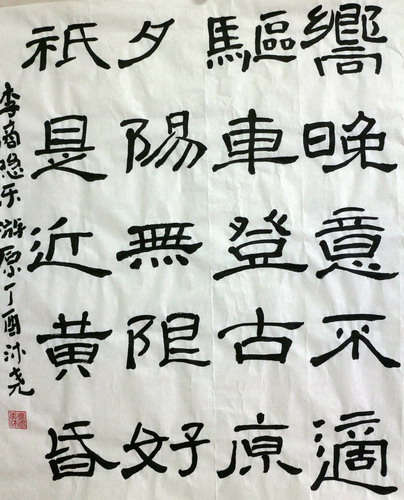 嚮晚意不適
驅車登古原
夕陽無限好
祇是近黃昏
李商隐乐游原丁酉尧